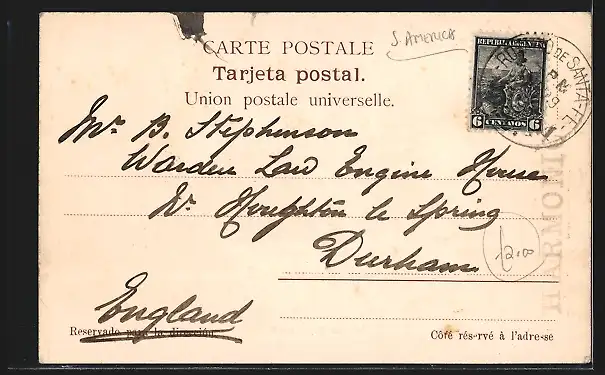 S. AMERICA
CARTE POSTALE
Tarjeta postal.
Union postale universelle.
REPUBLICA ARGENTINA
6 CENTAVOS 6
DE SANTA-FE
Mr. B. Stephenson
Warden Law Engine House
Nr. Houghton le Spring
Durham
England
12.00
HARMONI
Reservado para la dirección
Côté réservé à l'adresse